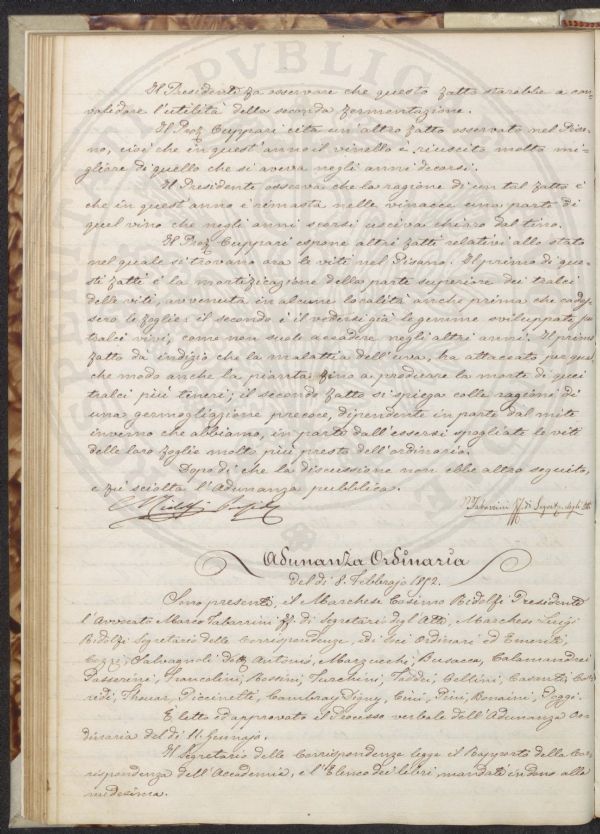 Il Presidente fa osservare che questo fatto starebbe a con=
validare l'utilità della seconda fermentazione.
Il Prof. Cuppari cita un altro fatto osservato nel Pisa=
no, cioè che in quest'anno il vinello è riuscito molto mi=
gliore di quello che si aveva negli anni decorsi.
Il Presidente osserva che la ragione di un tal fatto è
che in quest'anno è rimasta nelle vinacce una parte di
quel vino che negli anni scorsi usciva chiaro dal tino.
Il Prof. Cuppari espone altri fatti relativi allo stato
nel quale si trovano ora le viti nel Pisano. Il primo di que=
sti fatti è la mortificazione della parte superiore dei tralci
delle viti, avvenuta in alcune località anche prima che cades=
sero le foglie: il secondo è il vedersi già le gemme sviluppate su
tralci vivi, come non suole accadere negli altri anni. Il primo
fatto dà indizio che la malattia dell'uva, ha attaccato per qual
che modo anche la pianta fino a produrre la morte di quei
tralci più teneri; il secondo fatto si spiega colle ragioni di
una germogliazione precoce, dipendente in parte dal mite
inverno che abbiamo, in parte dall'essersi spogliate le viti
delle loro foglie molto più presto dell'ordinario.
Dopo di che la discussione non ebbe altro seguito,
e fu sciolta l'Adunanza pubblica.
C. Ridolfi
M. Tabarrini ff. di Segret. degli Atti
Adunanza Ordinaria
del dì 8. Febbrajo 1852.
Sono presenti, il Marchese Cosimo Ridolfi Presidente
l'Avvocato Marco Tabarrini ff. di Segretario degli Atti, Marchese Luigi
Ridolfi Segretario delle Corrispondenze, ed i Soci Ordinari ed Emeriti,
Salvagnoli dott. Antonio, Mazzucchi, Busacca, Calamandrei
Passerini, Franceloni, Rossini, Turchini, Taddei, Cellini, Casanti,
Thouar, Piccinetti, Cambray Digny, Cini, Pini, Bonaini, Poggi.
È letto ed approvato il Processo verbale dell'Adunanza Or
dinaria del dì 11. Gennajo.
Il Segretario delle Corrispondenze legge il Rapporto della Cor=
rispondenza dell'Accademia, e l'Elenco dei libri, mandati in dono alla
medesima.